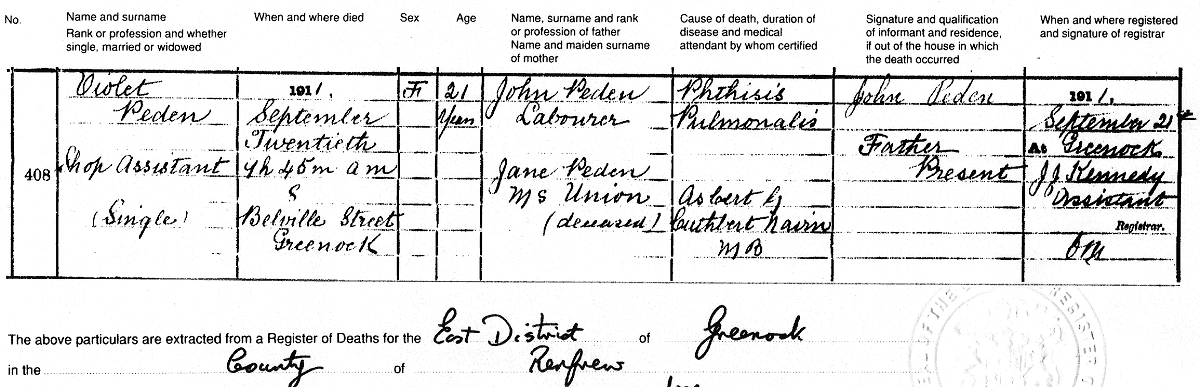 No.
Name and surname
Rank or profession and whether
single, married or widowed
When and where died
Sex
Age
Name, surname and rank
or profession of father
Name and maiden surname
of mother
Cause of death, duration of
disease and medical
attendant by whom certified
Signature and qualification
of informant and residence,
if out of the house in which
the death occurred
When and where registered
and signature of registrar
408
Violet
Peden
Shop Assistant
(Single)
1911.
September
Twentieth
4h 45m a m
8
Belville Street
Greenock
F
21
Years
John Peden
Labourer
Jane Peden
MS Union
(deceased)
Phthisis
Pulmonalis
As cert by
Cuthbert Nairn
MB
John Peden
Father
Present
1911.
September 21st
At Greenock
J J Kennedy
Assistant
Registrar.
The above particulars are extracted from a Register of Deaths for the East District of Greenock
in the County of Renfrew